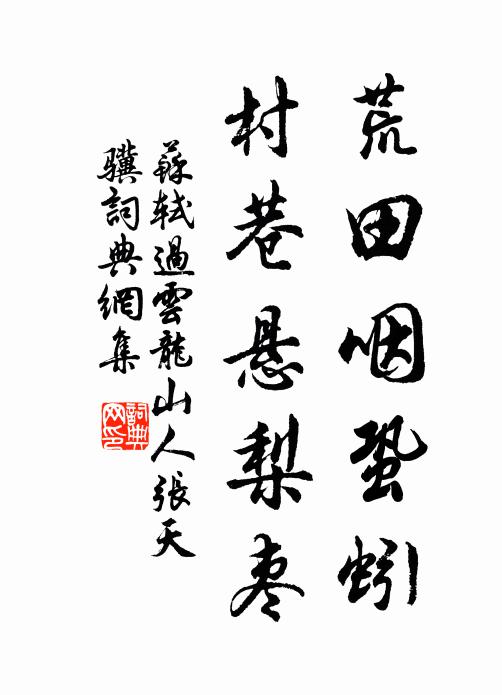 荒田咽蛩蚓
村巷悬梨枣
蘇軾過雲龍山人張天
驥詞典網集
詞典网印